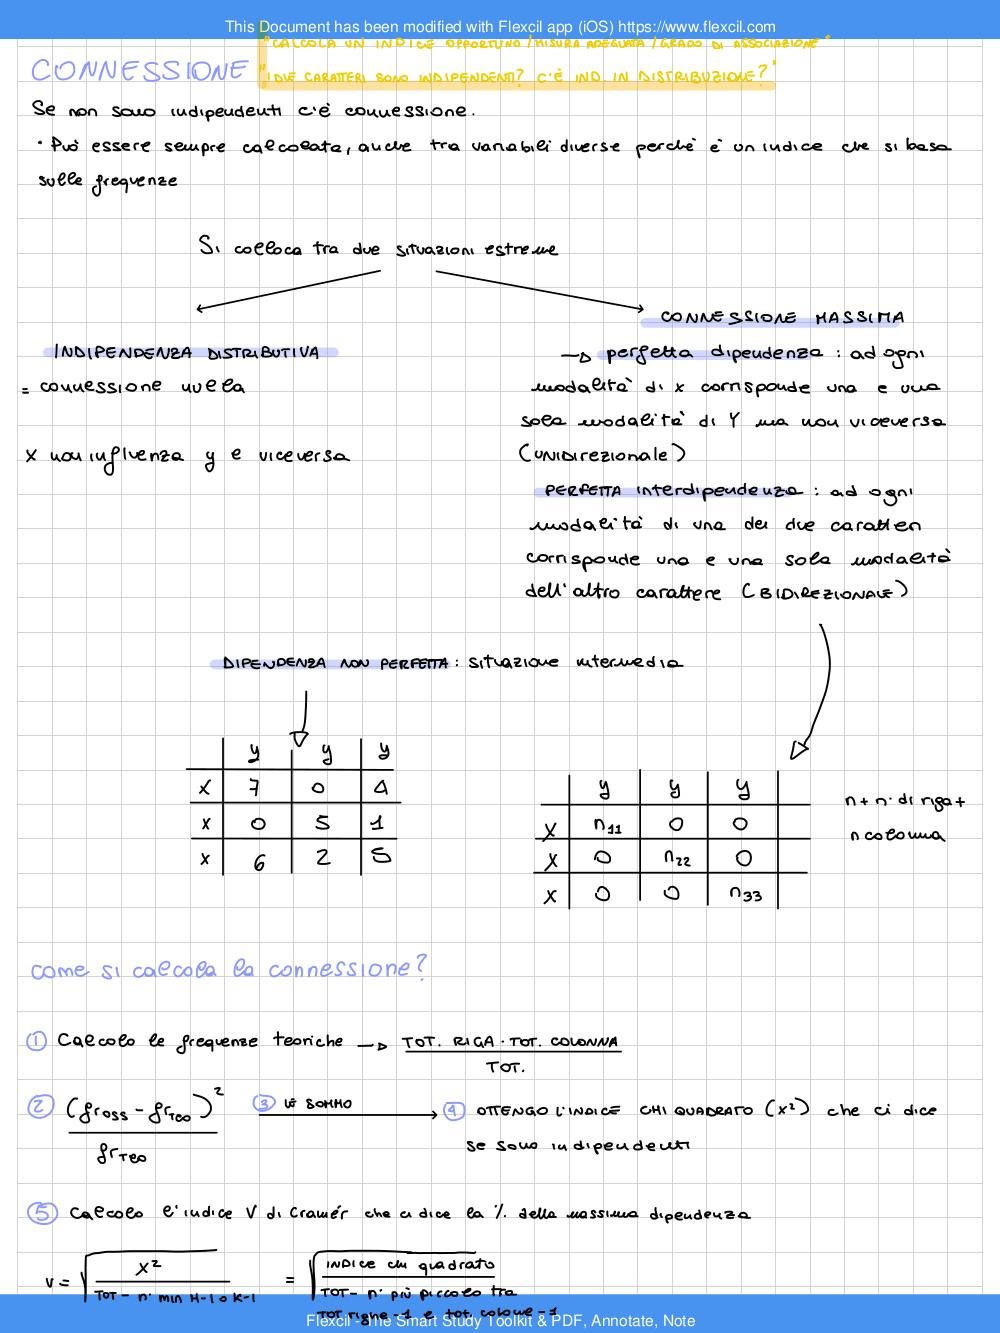 This Document has been modified with Flexcil app (iOS) https://www.flexcil.com
"CALCOLA UN INDICE OPPORTUNO/MISURA ADEGUATA/GRADO DI ASSOCIAZIONE"
CONNESSIONE "I DUE CARATTERI SONO INDIPENDENTI? C'È IND. IN DISTRIBUZIONE?"
Se non sono indipendenti c'è connessione.
• Può essere sempre calcolata, anche tra variabili diverse perchè è un indice che si basa
sulle frequenze
Si colloca tra due situazioni estreme
CONNESSIONE MASSIMA
INDIPENDENZA DISTRIBUTIVA
= connessione nulla
→ perfetta dipendenza : ad ogni
modalità di x corrisponde una e una
sola modalità di Y ma non viceversa
(UNIDIREZIONALE)
x non influenza y e viceversa
PERFETTA interdipendenza : ad ogni
modalità di una dei due caratteri
corrisponde una e una sola modalità
dell'altro carattere (BIDIREZIONALE)
DIPENDENZA NON PERFETTA : situazione intermedia
y y y
x 7 0 4
x 0 5 1
x 6 2 5
y y y
x n11 0 0
x 0 n22 0
x 0 0 n33
n + n. di riga +
n colonna
come si calcola la connessione?
① Calcolo le frequenze teoriche → TOT. RIGA · TOT. COLONNA
TOT.
② (fross - frteo)²
frteo
③ LE SOMMO
④ OTTENGO L'INDICE CHI QUADRATO (X²) che ci dice
se sono indipendenti
⑤ Calcolo l'indice V di Cramér che ci dice la % della massima dipendenza
V = √ X²
TOT - n. min H-1 o K-1
= √ INDICE chi quadrato
TOT - n. più piccolo tra
TOT righe -1 e tot. colonne -1
Flexcil - The Smart Study Toolkit & PDF, Annotate, Note